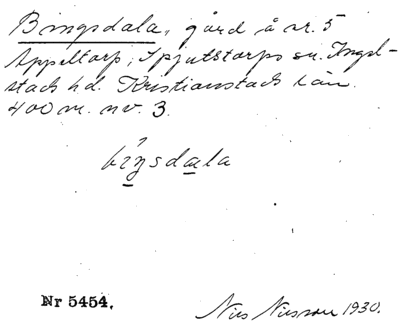 Bingsdala, gård å nr. 5
Appeltorp, Spjutstorps sn. Ingel-
stads hd. Kristianstads län.
400 m. nv. 3.
bíŋsdala
Nr 5454.
Nils Nilsson 1930.